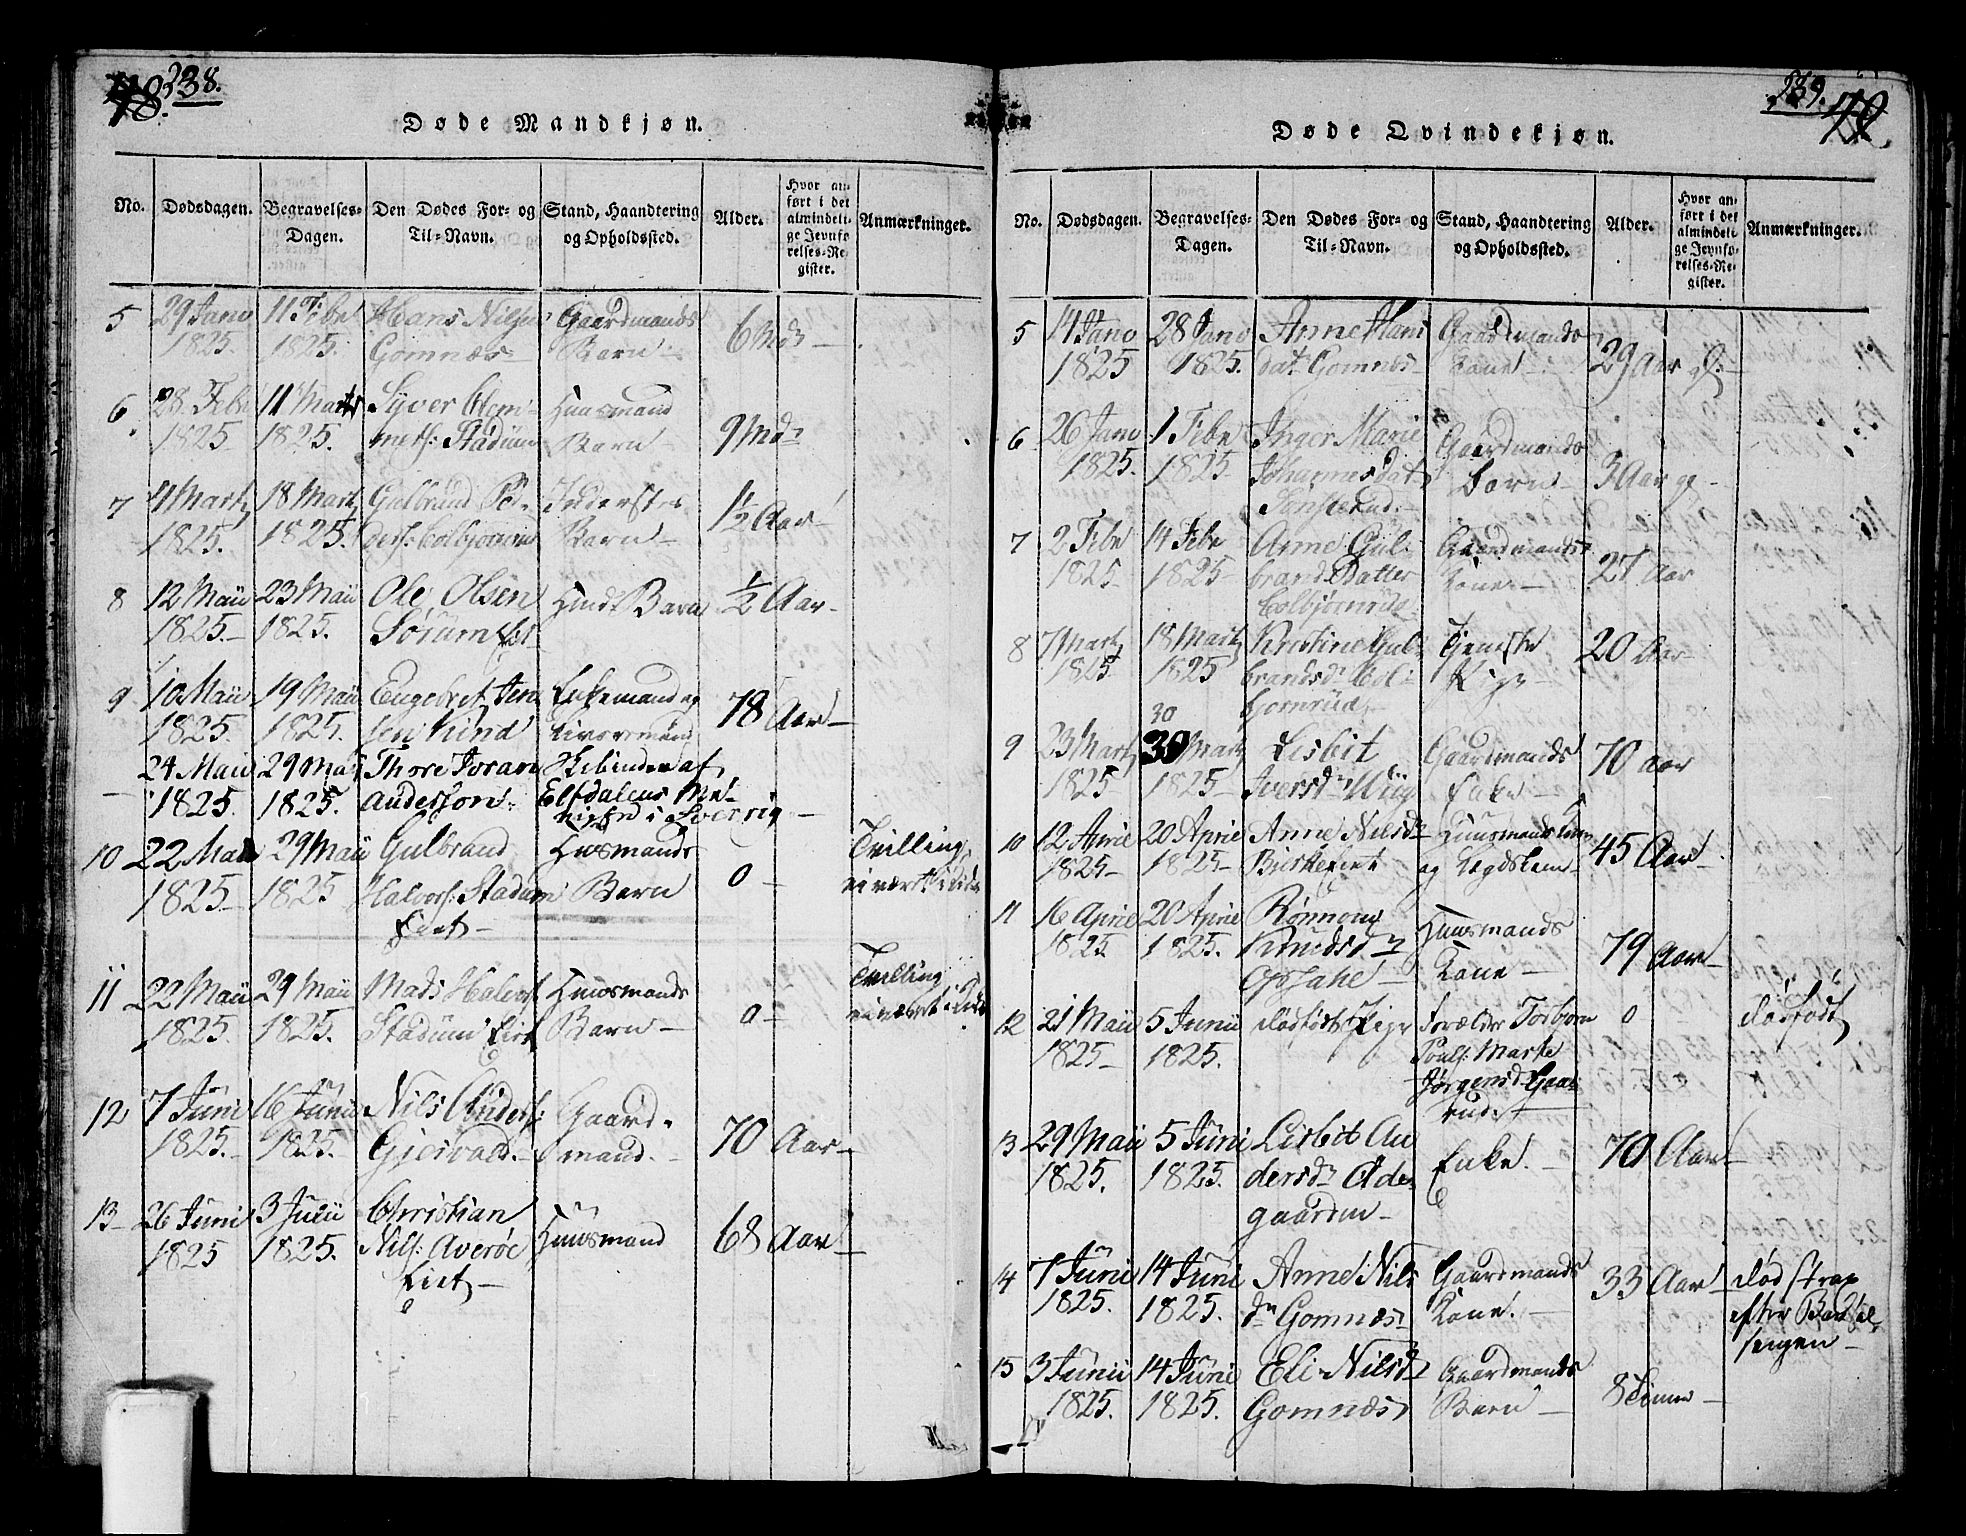 338.
78.
Døde Mandkjøn.
No.
Dødsdagen.
Begravelses-
Dagen.
Den Dødes For- og
Til-Navn.
Stand, Haandtering
og Opholdssted.
Alder.
Hvor an-
ført i det
almindeli-
ge Jevnfø-
relses-Re-
gister.
Anmærkninger.
5
29 Jano
1825.
11 Febr
1825.
Hans Nilsen
Gomnæs
Gaardmands
Barn
6 Mdr
6.
28 Febr
1825
11 Marts
1825.
Syver Clem-
mets: Stadum
Huusmand
Barn
9 Mdr
7
4 Marts
1825.
18 Marts
1825.
Gulbrand Pe-
ders: Colbjørnrud
Inderstes
Barn
1½ Aar
8
12 Maii
1825.
23 Maii
1825.
Ole Olsen
Sørum
Barn
½ Aar
9
10 Maii
1825.
19 Maii
1825.
Engebret Jen
sen Hind
Enkemand og
78 Aar
24 Maii
1825.
29 Maii
1825.
Thore Joran
Anderson
af
Elfdalens
i Sverrig
10
22 Maii
1825
29 Maii
1825
Gulbrand
Halvors: Stadum
Eiet
Huusmands
Barn
0
Tvilling,
11
22 Maii
1825.
29 Maii
1825.
Mads Halvors:
Stadum Eiet
Huusmands
Barn
0
Tvilling
12
7 Juni
1825.
16 Juni
1825.
Nils Anders:
Gjesvald
Gaard-
mand.
70 Aar
13
26 Juni
1825
3 Julii
1825.
Christian
Nils: Averøe
Eiet
Huusmand
68 Aar
339.
79.
Døde Qvindekjøn.
No.
Dødsdagen.
Begravelses-
Dagen.
Den Dødes For- og
Til-Navn.
Stand, Haandtering
og Opholdssted.
Alder.
Hvor an-
ført i det
almindeli-
ge Jevnfø-
relses-Re-
gister.
Anmærkninger.
5
14 Jano
1825
28 Jano
1825.
Anne Hans
dat. Gomnes
Gaardmands
Kone
29 Aar
6
26 Jano
1825.
1 Febr
1825
Inger Marie
Johannesdat
Gaardmands
Barn
3 Aar
7
2 Febr
1825
14 Febr
1825
Anne Gul-
brands Datter
Colbjørnrud
Gaardmands
Kone
27 Aar
8
7 Marts
1825
18 Marts
1825
Kristine Gul-
brandsdr Col-
bjornrud
Tjeneste
Pige
20 Aar
9
23 Marts
1825
30
30 Marts
1825
Lisbit
Iversdr
Gaardmands
Enke
70 aar
10
12 April
1825
20 April
1825
Anne Nilsdr
Huusmands Kone
og Lægdslem
45 Aar
11
16 April
1825
20 April
1825.
Rønnoug
Knudsdr
Opsahl
Huusmands
Kone
79 Aar
12
21 Maii
1825
5 Junii
1825.
dødfødt Pige
Forældre Torbjørn
Pouls: Marte
Jørgensdr
rud.
0
dødfødt
13
29 Maii
1825.
5 Juni
1825.
Lisbit An
dersdr Ode-
gaarden
Enke.
70 Aar
14
7 Juni
1825.
14 Juni
1825.
Anne Nils
dr Gomnæs
Gaardmands
Kone.
33 Aar
død strax
efter Barsel
sengen
15
3 Junii
1825.
14 Juni
1825.
Eli Nilsdr
Gomnæs
Gaardmands
Barn
8 Timer